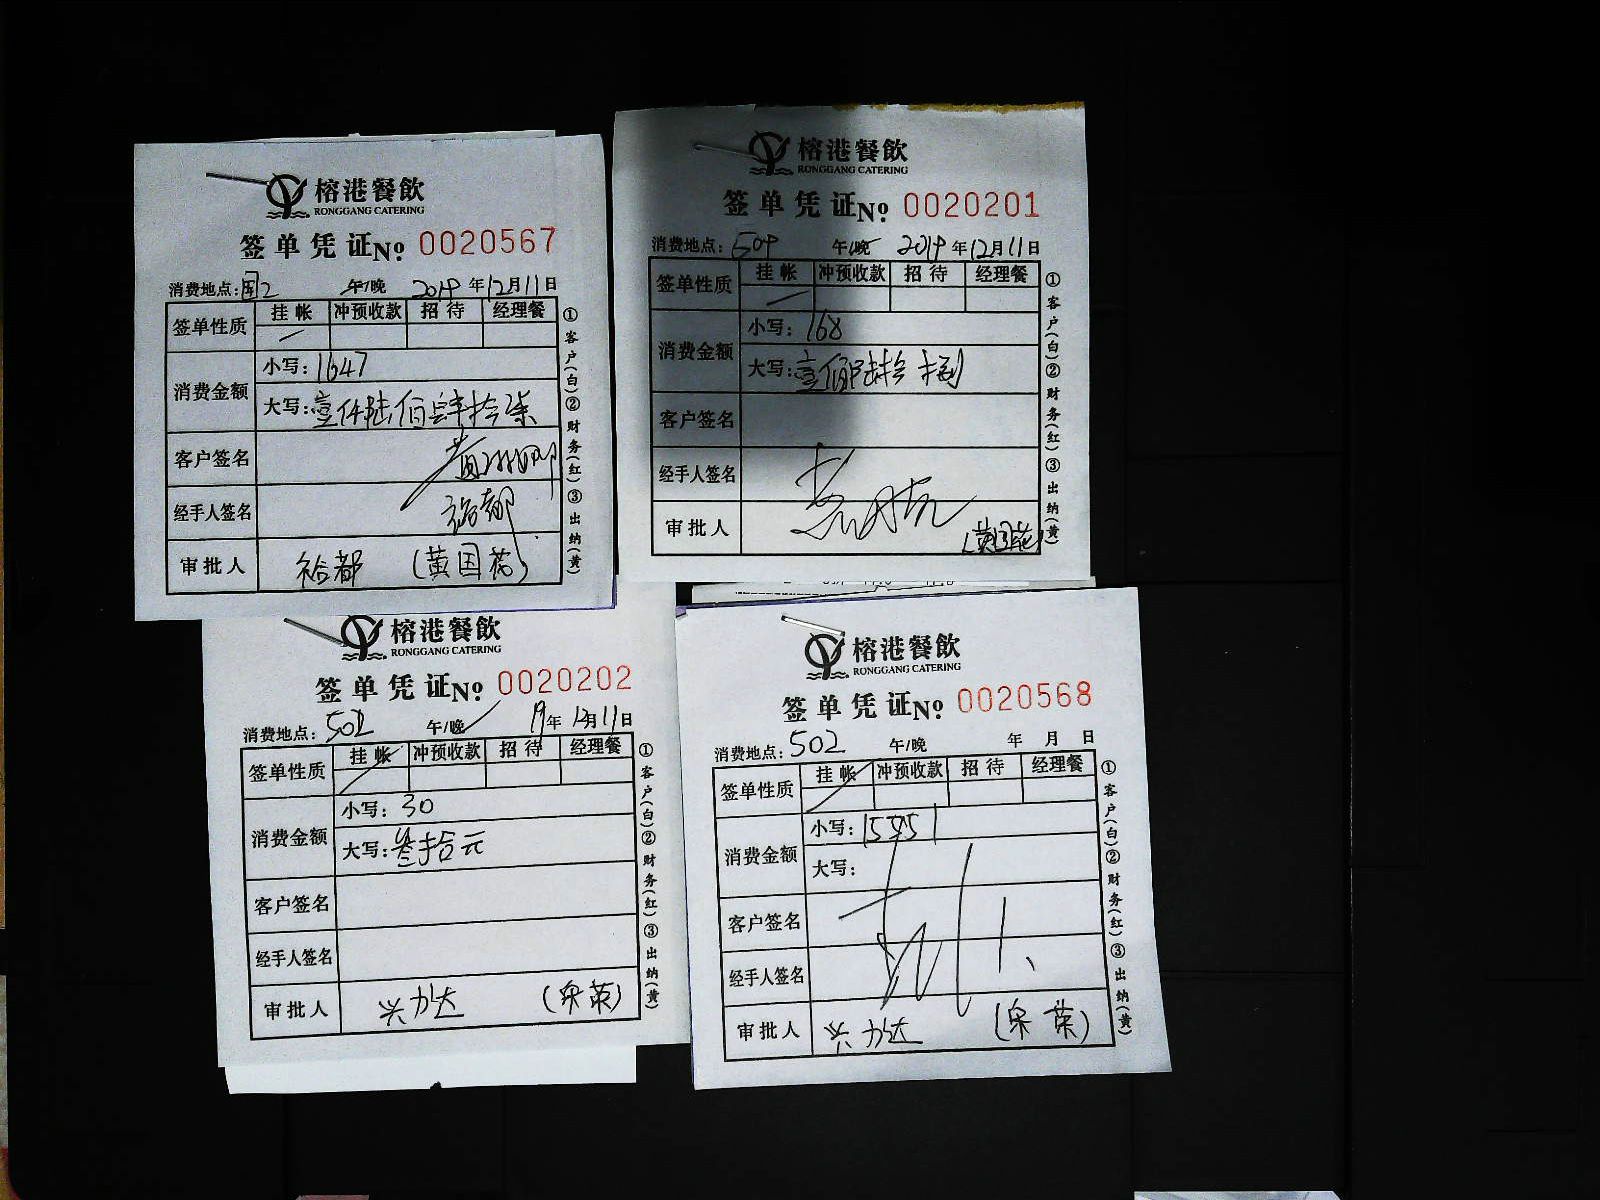 榕港餐飲
RONGGANG CATERING
签单凭证No 0020567
消费地点:国2 午/晚 2019年12月11日
签单性质 挂帐 冲预收款 招待 经理餐
消费金额 小写:1647
大写:壹仟陆佰肆拾柒
客户签名
经手人签名
审批人 (黄国花)
①客户(白)②财务(红)③出纳(黄)
榕港餐飲
RONGGANG CATERING
签单凭证No 0020201
消费地点:504 午/晚 2019年12月11日
签单性质 挂帐 冲预收款 招待 经理餐
消费金额 小写:168
大写:壹佰陆拾捌
客户签名
经手人签名
审批人 (黄国花)
①客户(白)②财务(红)③出纳(黄)
榕港餐飲
RONGGANG CATERING
签单凭证No 0020202
消费地点:502 午/晚 19年12月11日
签单性质 挂帐 冲预收款 招待 经理餐
消费金额 小写:30
大写:叁拾元
客户签名
经手人签名
审批人 (宋荣)
①客户(白)②财务(红)③出纳(黄)
榕港餐飲
RONGGANG CATERING
签单凭证No 0020568
消费地点:502 午/晚 年 月 日
签单性质 挂帐 冲预收款 招待 经理餐
消费金额 小写:
大写:
客户签名
经手人签名
审批人 (宋荣)
①客户(白)②财务(红)③出纳(黄)